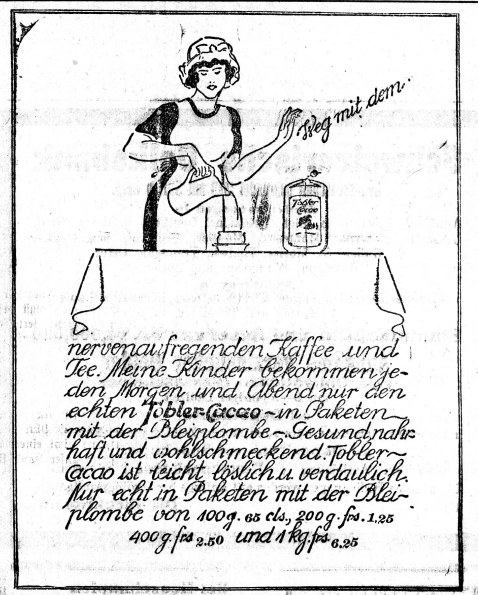 Weg mit dem
Tobler
Cacao
nervenaufregenden Kaffee und
Tee. Meine Kinder bekommen je-
den Morgen und Abend nur den
echten Tobler-Cacao - in Paketen
mit der Bleiplombe - Gesund, nahr-
haft und wohlschmeckend. Tobler-
Cacao ist leicht löslich u. verdaulich.
Nur echt in Paketen mit der Blei-
plombe von 100g. 65 cls., 200 g. frs. 1.25
400 g. frs 2.50 und 1 kg. frs 6.25